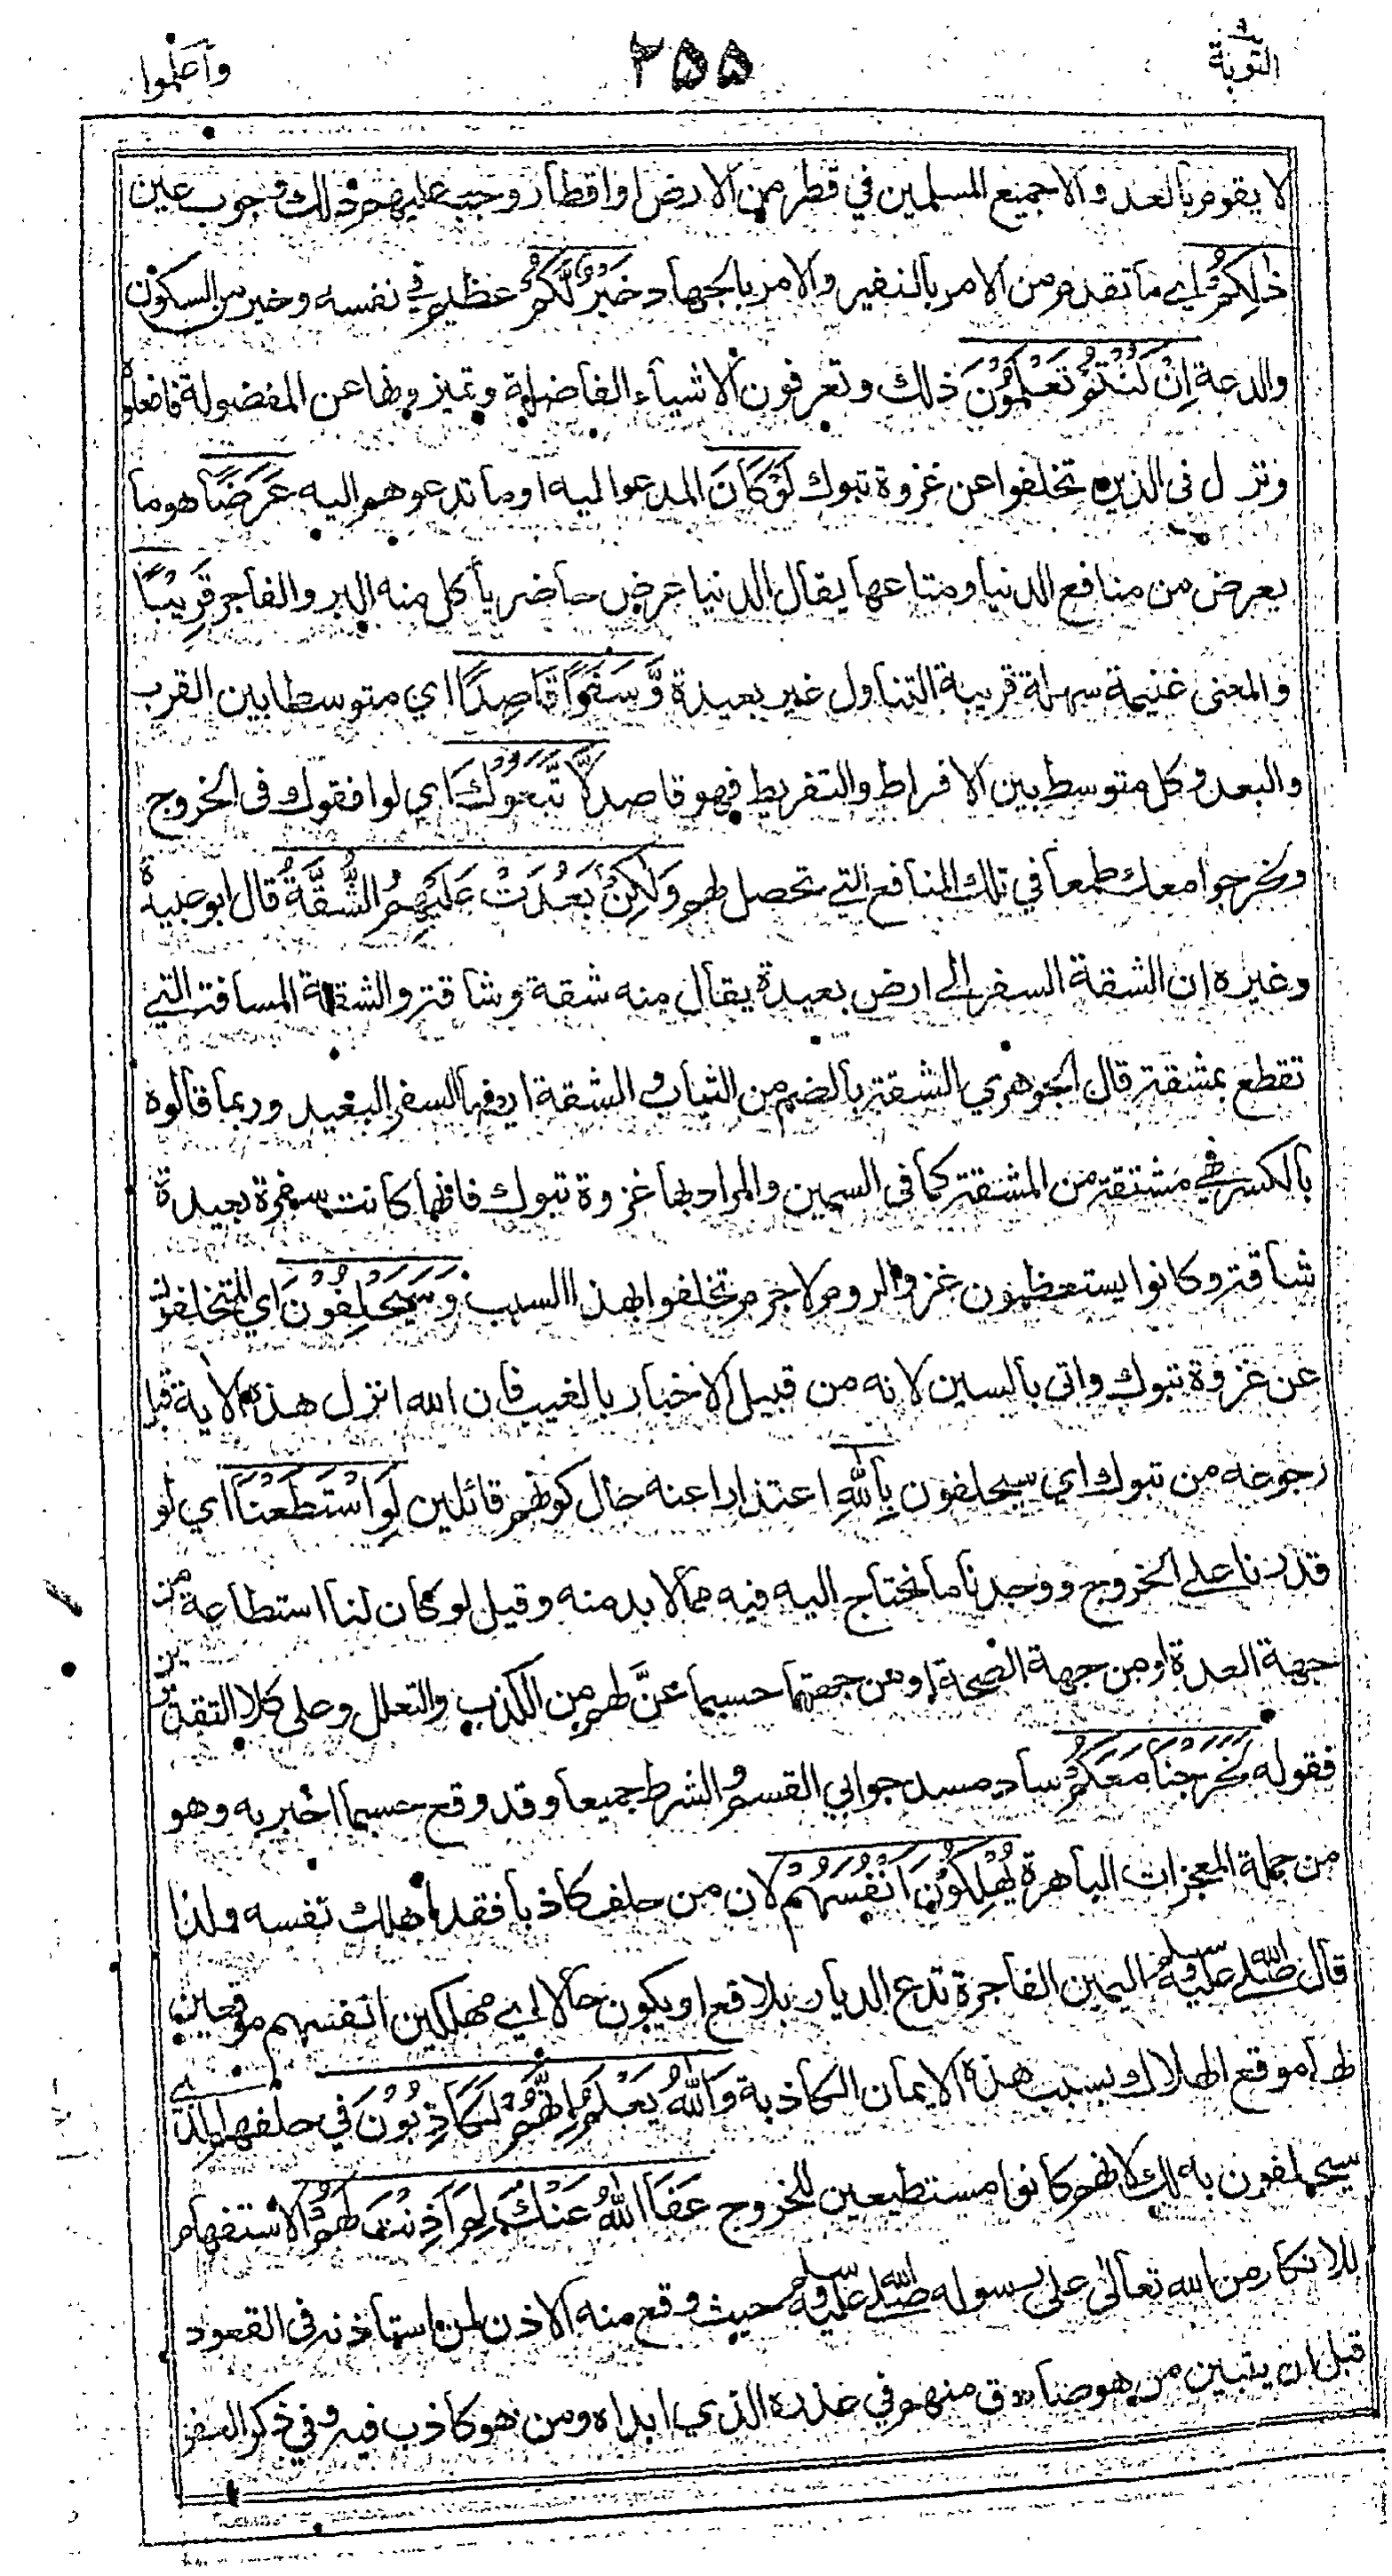 التوبة
٢٥٥
واعلموا
لا يقوم بالعدو الا جميع المسلمين في قطر من الارض او اقطار وجب عليهم ذلك وجوب عين
ذٰلِكُمْ اي ما تقدم من الامر بالنفير والامر بالجهاد خَيْرٌ لَّكُمْ عظيم في نفسه وخير من السكون
والدعة اِنْ كُنْتُمْ تَعْلَمُوْنَ ذلك وتعرفون الاشياء الفاضلة وتميزونها عن المفضولة فافعلوه
ونزل في الذين تخلفوا عن غزوة تبوك لَوْ كَانَ المدعو اليه او ما تدعوهم اليه عَرَضًا هو ما
يعرض من منافع الدنيا ومتاعها يقال الدنيا عرض حاضر يأكل منه البر والفاجر قَرِيْبًا
والمعنى غنيمة سهلة قريبة التناول غير بعيدة وَّسَفَرًا قَاصِدًا اي متوسطا بين القرب
والبعد وكل متوسط بين الافراط والتفريط فهو قاصد لَّاتَّبَعُوْكَ اي لوافقوك في الخروج
ولخرجوا معك طمعا في تلك المنافع التي تحصل لهم وَلٰكِنْۢ بَعُدَتْ عَلَيْهِمُ الشُّقَّةُ قال ابو عبيدة
وغيره ان الشقة السفر الى ارض بعيدة يقال منه شقة وشاقة والشقة المسافة التي
تقطع بمشقة قال الجوهري الشقة بالضم من الثياب والشقة ايضا السفر البعيد وربما قالوه
بالكسر فهي مشتقة من المشقة كما في السمين والمراد بها غزوة تبوك فانها كانت سفرة بعيدة
شاقة وكانوا يستعظمون غزو الروم لا جرم تخلفوا لهذا السبب وَسَيَحْلِفُوْنَ اي المتخلفون
عن غزوة تبوك واتى بالسين لانه من قبيل الاخبار بالغيب فان الله انزل هذه الاية قبل
رجوعه من تبوك اي سيحلفون بِاللّٰهِ اعتذارا عنه حال كونهم قائلين لَوِ اسْتَطَعْنَا اي لو
قدرنا على الخروج ووجدنا ما نحتاج اليه فيه مما لا بد منه وقيل لو كان لنا استطاعة من
جهة العدة او من جهة الصحة او من جهتهما حسبما عنَّ لهم من الكذب والتعلل وعلى كلا التقديرين
فقوله لَخَرَجْنَا مَعَكُمْ ساد مسد جوابي القسم والشرط جميعا وقد وقع حسبما اخبر به وهو
من جملة المعجزات الباهرة يُهْلِكُوْنَ اَنْفُسَهُمْ لان من حلف كاذبا فقد اهلك نفسه ولذا
قال صلى الله عليه وسلم اليمين الفاجرة تدع الديار بلاقع او يكون حالا اي مهلكين انفسهم موقعين
لها موقع الهلاك بسبب هذه الايمان الكاذبة وَاللّٰهُ يَعْلَمُ اِنَّهُمْ لَكَاذِبُوْنَ في حلفهم الذي
سيحلفون به لك لانهم كانوا مستطيعين للخروج عَفَا اللّٰهُ عَنْكَ لِمَ اَذِنْتَ لَهُمْ الاستفهام
للانكار من الله تعالى على رسوله صلى الله عليه وسلم حيث وقع منه الاذن لمن استاذنه في القعود
قبل ان يتبين من هو صادق منهم في عذره الذي ابداه ومن هو كاذب فيه وفي ذكر السفر